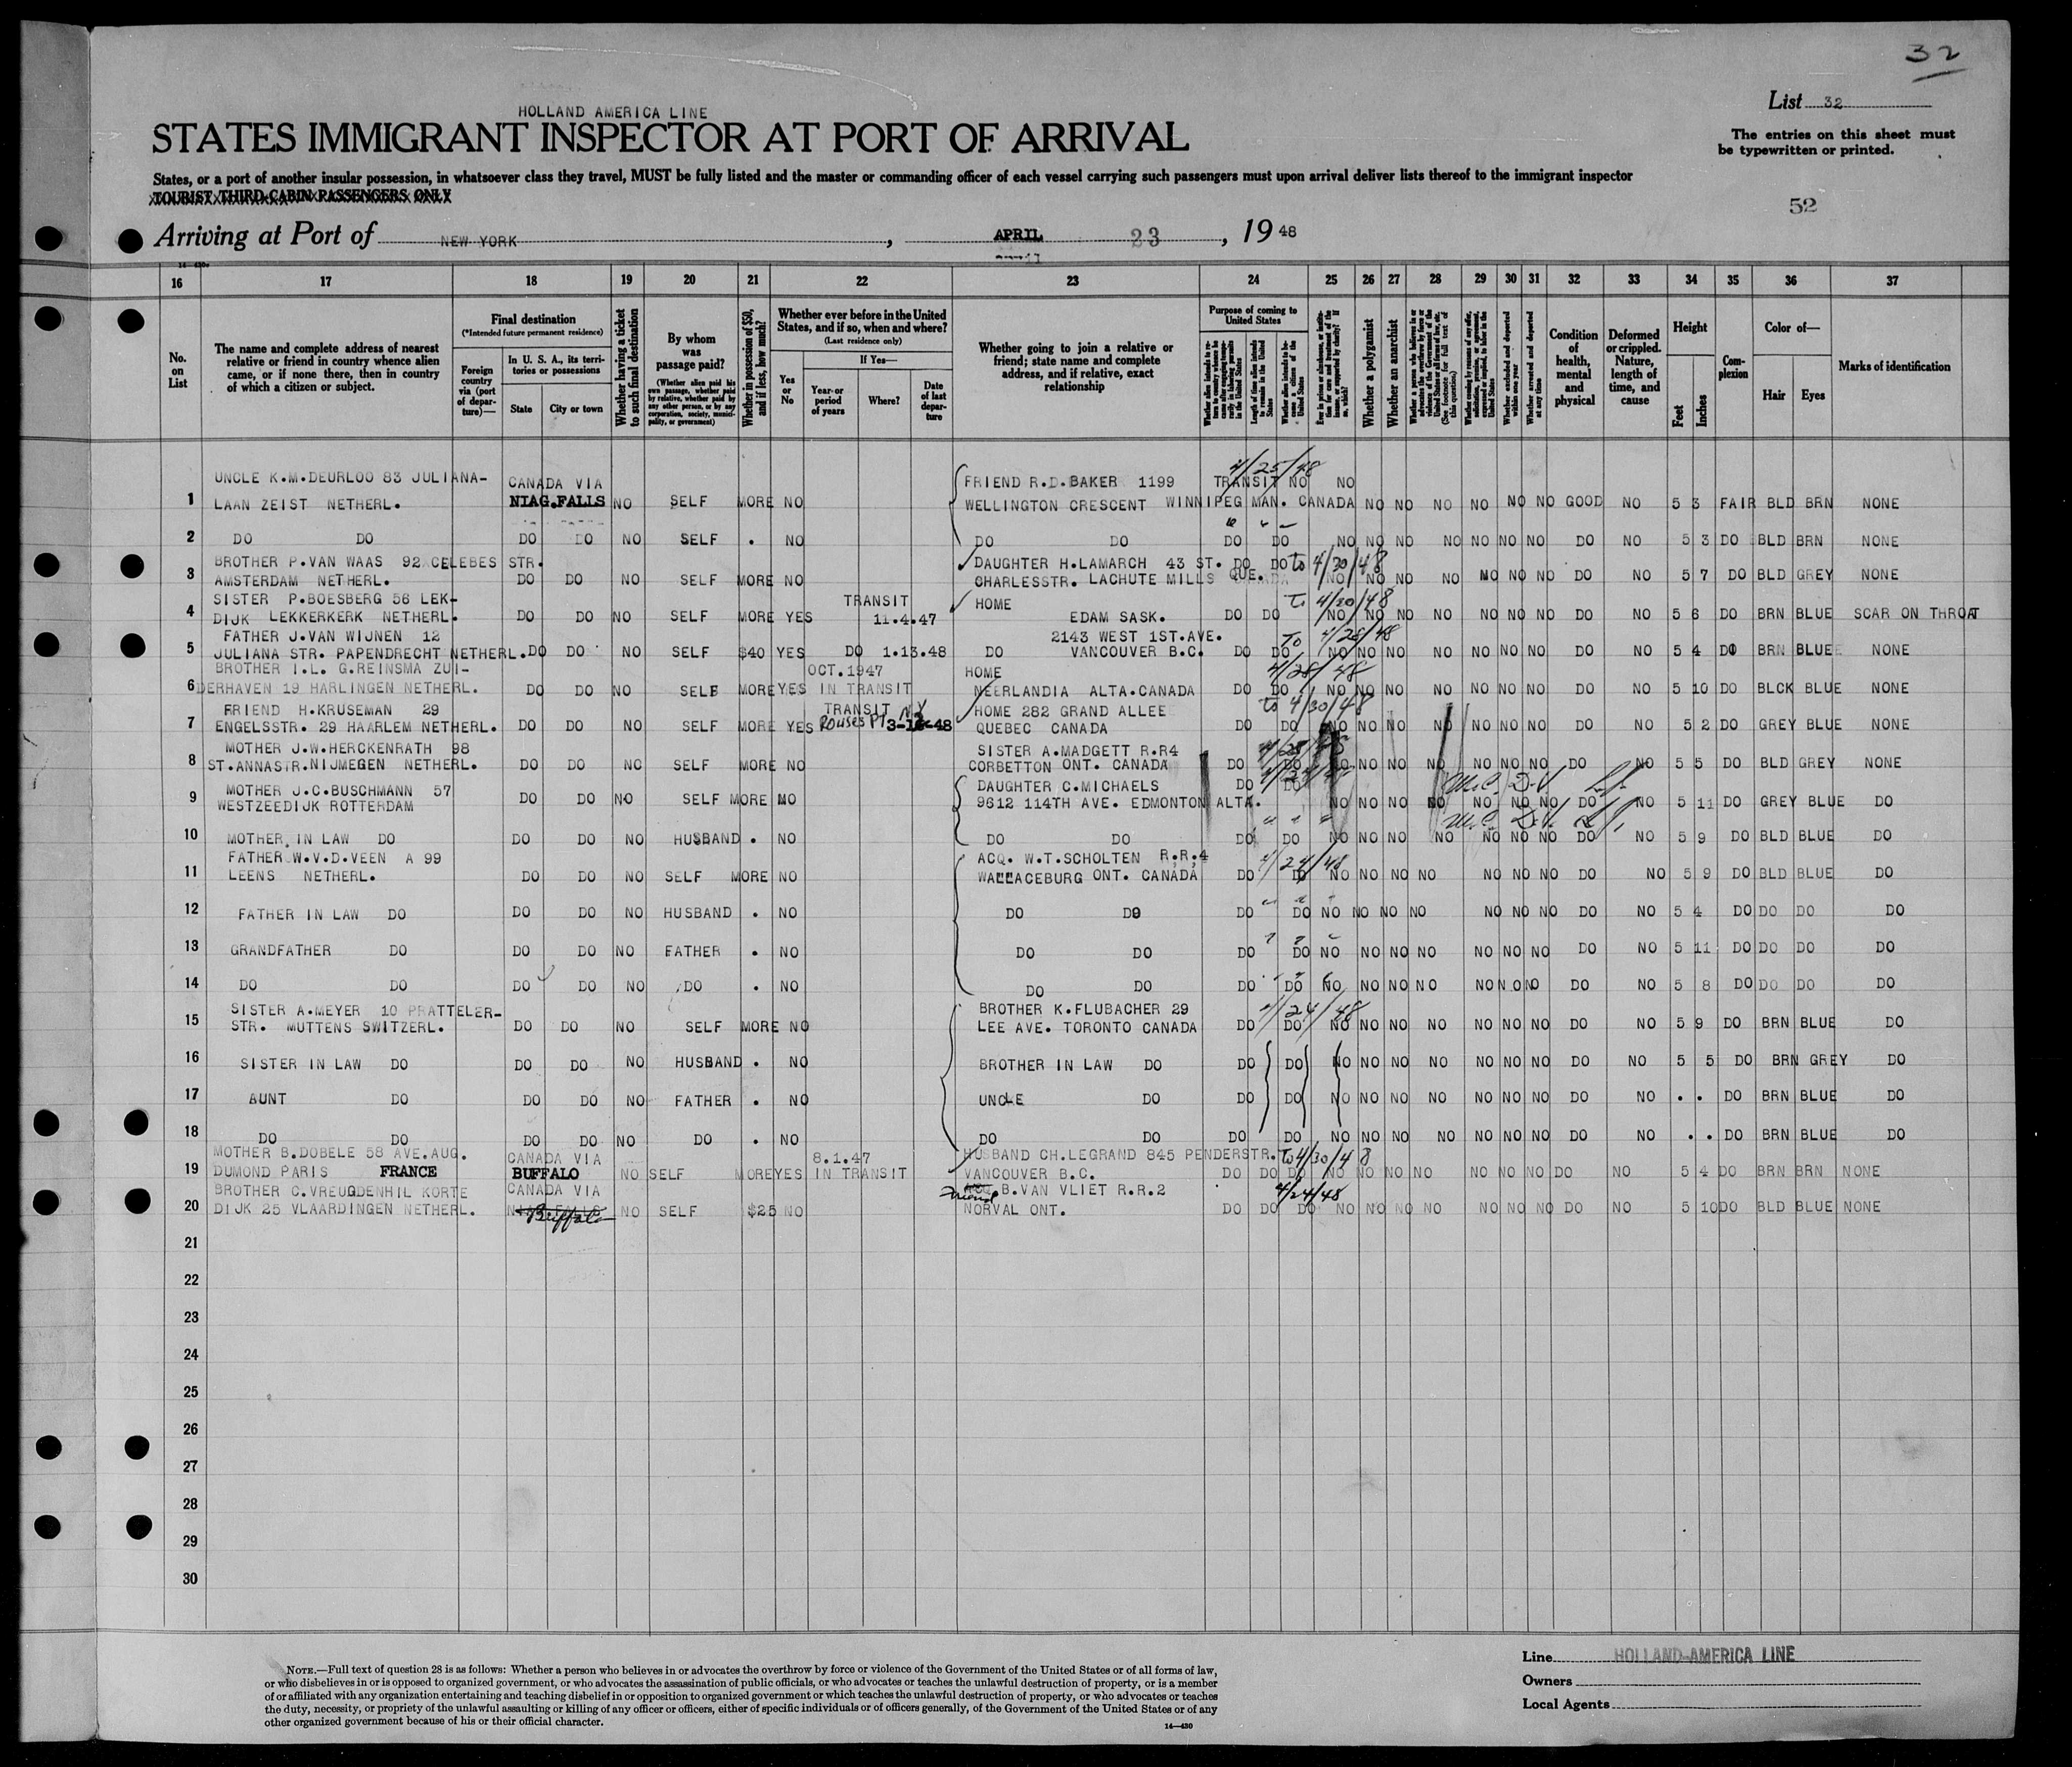 32
HOLLAND AMERICA LINE
List 32
STATES IMMIGRANT INSPECTOR AT PORT OF ARRIVAL
The entries on this sheet must
be typewritten or printed.
States, or a port of another insular possession, in whatsoever class they travel, MUST be fully listed and the master or commanding officer of each vessel carrying such passengers must upon arrival deliver lists thereof to the immigrant inspector
TOURIST THIRD-CABIN PASSENGERS ONLY
52
Arriving at Port of NEW YORK, APRIL 23, 1948
16 17 18 19 20 21 22 23 24 25 26 27 28 29 30 31 32 33 34 35 36 37
No. on List
The name and complete address of nearest relative or friend in country whence alien came, or if none there, then in country of which a citizen or subject.
Final destination
(*Intended future permanent residence)
Foreign country via (port of departure)—
In U. S. A., its territories or possessions
State
City or town
Whether having a ticket to such final destination
By whom was passage paid?
(Whether alien paid his own passage, whether paid by relative, whether paid by any other person, or by any corporation, society, municipality, or government)
Whether in possession of $50, and if less, how much?
Whether ever before in the United States, and if so, when and where?
(Last residence only)
Yes or No
If Yes—
Year or period of years
Where?
Date of last departure
Whether going to join a relative or friend; state name and complete address, and if relative, exact relationship
Purpose of coming to United States
Whether a polygamist
Whether an anarchist
Whether excluded and deported within one year
Whether arrested and deported at any time
Condition of health, mental and physical
Deformed or crippled. Nature, length of time, and cause
Height
Feet
Inches
Complexion
Color of—
Hair
Eyes
Marks of identification
UNCLE K.M.DEURLOO 83 JULIANA- CANADA VIA FRIEND R.D.BAKER 1199 4/25/48 TRANSIT NO NO
1 LAAN ZEIST NETHERL. NIAG.FALLS NO SELF MORE NO WELLINGTON CRESCENT WINNIPEG MAN. CANADA NO NO NO NO NO NO GOOD NO 5 3 FAIR BLD BRN NONE
2 DO DO DO DO NO SELF . NO DO DO DO DO NO NO NO NO NO NO NO DO NO 5 3 DO BLD BRN NONE
BROTHER P.VAN WAAS 92 CELEBES STR. DAUGHTER H.LAMARCH 43 ST. DO DO to 4/30/48
3 AMSTERDAM NETHERL. DO DO NO SELF MORE NO CHARLESSTR. LACHUTE MILLS QUE. NO NO NO NO NO NO NO DO NO 5 7 DO BLD GREY NONE
SISTER P.BOESBERG 56 LEK- TRANSIT HOME To 4/30/48
4 DIJK LEKKERKERK NETHERL. DO DO NO SELF MORE YES 11.4.47 EDAM SASK. DO DO NO NO NO NO NO NO NO DO NO 5 6 DO BRN BLUE SCAR ON THROAT
FATHER J.VAN WIJNEN 12 2143 WEST 1ST.AVE. To 4/28/48
5 JULIANA STR. PAPENDRECHT NETHERL. DO DO NO SELF $40 YES DO 1.13.48 DO VANCOUVER B.C. DO DO NO NO NO NO NO NO NO DO NO 5 4 DO BRN BLUE NONE
BROTHER I.L. G.REINSMA ZUI- OCT.1947 HOME 4/28/48
6 DERHAVEN 19 HARLINGEN NETHERL. DO DO NO SELF MORE YES IN TRANSIT NEERLANDIA ALTA.CANADA DO DO NO NO NO NO NO NO NO DO NO 5 10 DO BLCK BLUE NONE
FRIEND H.KRUSEMAN 29 TRANSIT NY HOME 282 GRAND ALLEE to 4/30/48
7 ENGELSSTR. 29 HAARLEM NETHERL. DO DO NO SELF MORE YES Rouses Pt 3-13-48 QUEBEC CANADA DO DO NO NO NO NO NO NO NO DO NO 5 2 DO GREY BLUE NONE
MOTHER J.W.HERCKENRATH 98 SISTER A.MADGETT R.R4
8 ST.ANNASTR.NIJMEGEN NETHERL. DO DO NO SELF MORE NO CORBETTON ONT. CANADA DO DO NO NO NO NO NO NO NO DO NO 5 5 DO BLD GREY NONE
MOTHER J.C.BUSCHMANN 57 DAUGHTER C.MICHAELS DO DO
9 WESTZEEDIJK ROTTERDAM DO DO NO SELF MORE NO 9612 114TH AVE. EDMONTON ALTA. NO NO NO NO NO NO NO DO NO 5 11 DO GREY BLUE DO
10 MOTHER IN LAW DO DO DO NO HUSBAND . NO DO DO DO DO NO NO NO NO NO NO NO DO NO 5 9 DO BLD BLUE DO
FATHER W.V.D.VEEN A 99 ACQ. W.T.SCHOLTEN R.R.4 4/24/48
11 LEENS NETHERL. DO DO NO SELF MORE NO WALLACEBURG ONT. CANADA DO DO NO NO NO NO NO NO NO DO NO 5 9 DO BLD BLUE DO
12 FATHER IN LAW DO DO DO NO HUSBAND . NO DO DO DO DO NO NO NO NO NO NO NO DO NO 5 4 DO DO DO DO
13 GRANDFATHER DO DO DO NO FATHER . NO DO DO DO DO NO NO NO NO NO NO NO DO NO 5 11 DO DO DO DO
14 DO DO DO DO NO DO . NO DO DO DO DO NO NO NO NO NO NO NO DO NO 5 8 DO DO DO DO
SISTER A.MEYER 10 PRATTELER- BROTHER K.FLUBACHER 29 4/24/48
15 STR. MUTTENS SWITZERL. DO DO NO SELF MORE NO LEE AVE. TORONTO CANADA DO DO NO NO NO NO NO NO NO DO NO 5 9 DO BRN BLUE DO
16 SISTER IN LAW DO DO DO NO HUSBAND . NO BROTHER IN LAW DO DO DO NO NO NO NO NO NO NO DO NO 5 5 DO BRN GREY DO
17 AUNT DO DO DO NO FATHER . NO UNCLE DO DO DO NO NO NO NO NO NO NO DO NO . . DO BRN BLUE DO
18 DO DO DO DO NO DO . NO DO DO DO DO NO NO NO NO NO NO NO DO NO . . DO BRN BLUE DO
MOTHER B.DOBELE 58 AVE.AUG. CANADA VIA 8.1.47 HUSBAND CH.LEGRAND 845 PENDERSTR. to 4/30/48
19 DUMOND PARIS FRANCE BUFFALO NO SELF MORE YES IN TRANSIT VANCOUVER B.C. DO DO DO NO NO NO NO NO NO NO DO NO 5 4 DO BRN BRN NONE
BROTHER C.VREUGDENHIL KORTE CANADA VIA Friend B.VAN VLIET R.R.2 4/24/48
20 DIJK 25 VLAARDINGEN NETHERL. Buffalo NO SELF $25 NO NORVAL ONT. DO DO DO NO NO NO NO NO NO NO DO NO 5 10 DO BLD BLUE NONE
21
22
23
24
25
26
27
28
29
30
NOTE.—Full text of question 28 is as follows: Whether a person who believes in or advocates the overthrow by force or violence of the Government of the United States or of all forms of law,
or who disbelieves in or is opposed to organized government, or who advocates the assassination of public officials, or who advocates or teaches the unlawful destruction of property, or is a member
of or affiliated with any organization entertaining and teaching disbelief in or opposition to organized government or which teaches the unlawful destruction of property, or who advocates or teaches
the duty, necessity, or propriety of the unlawful assaulting or killing of any officer or officers, either of specific individuals or of officers generally, of the Government of the United States or of any
other organized government because of his or their official character.
14—430
Line HOLLAND-AMERICA LINE
Owners
Local Agents